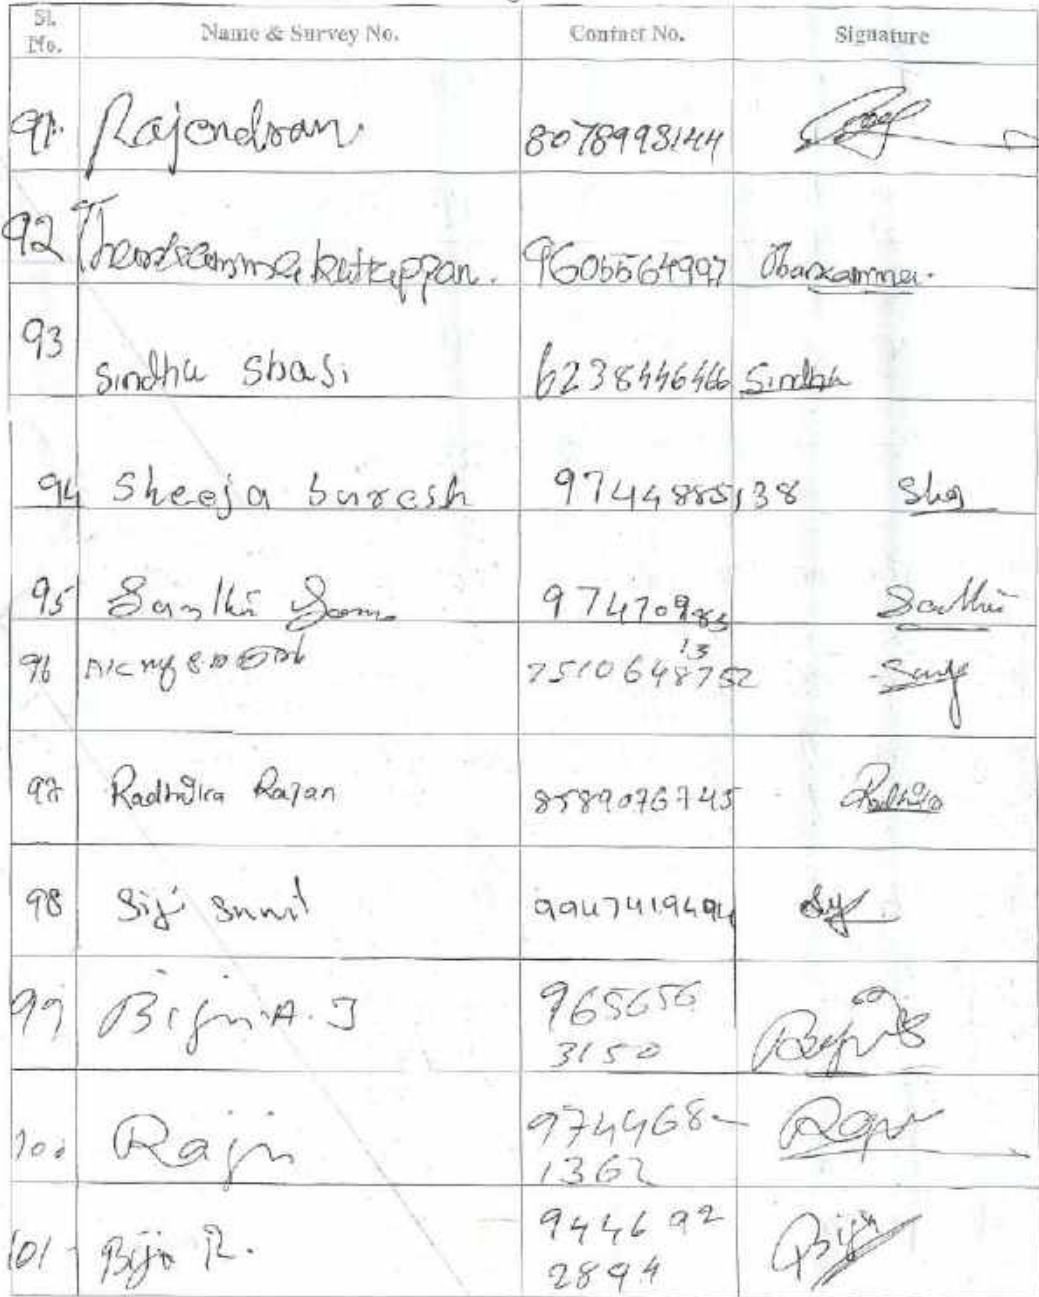 Sl. No. Name & Survey No. Contact No. Signature
91. Rajendran. 8078993144
92 Thankamma kuttappan. 9605564997 Thankamma.
93 Sindhu Shaji 6238446466 Sindhu
94 Sheeja Suresh 9744885138 Shej
95 Santhi Soma 97470985 Santhi
13
96 7510648752
97 Radhika Rajan 8589076745 Radhika
98 Siji Sunil 9947419494 Siji
99 Biju A. J 965656
3150
100 Raju 974468- Raju
1362
101 Biju R. 944692 Biju
2894